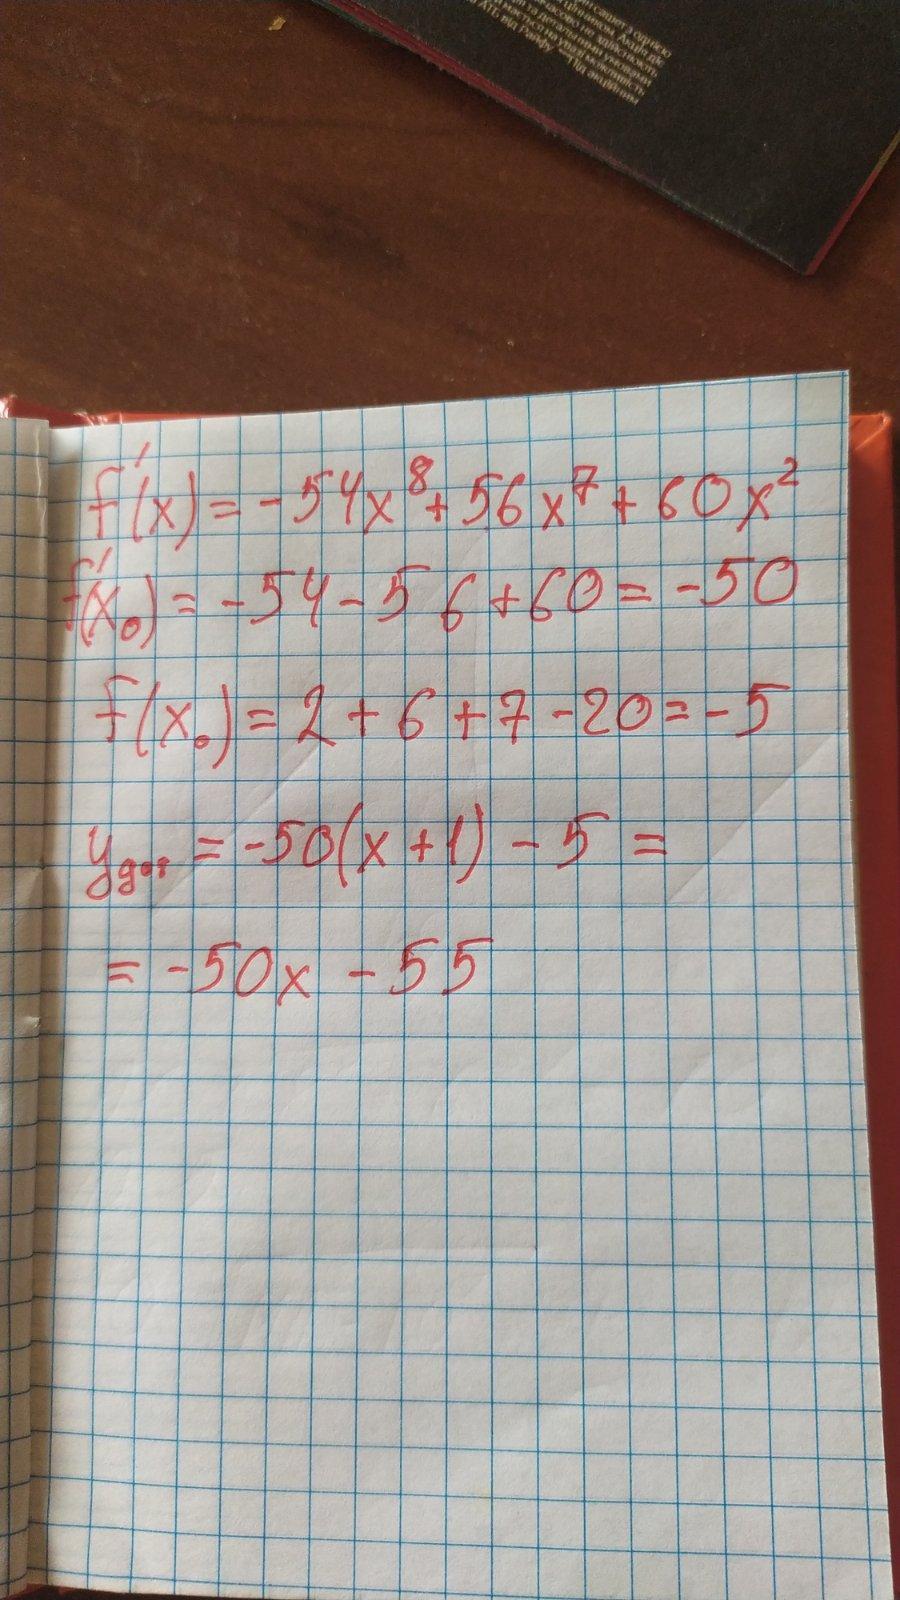 f'(x) = -54x⁸ + 56x⁷ + 60x²
f'(x₀) = -54 - 56 + 60 = -50
f(x₀) = 2 + 6 + 7 - 20 = -5
yдот = -50(x + 1) - 5 =
= -50x - 55